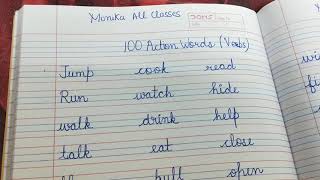 Monika All Classes
100 Action Words (Verbs)
Jump cook read
Run watch hide
walk drink help
talk eat close
pull open